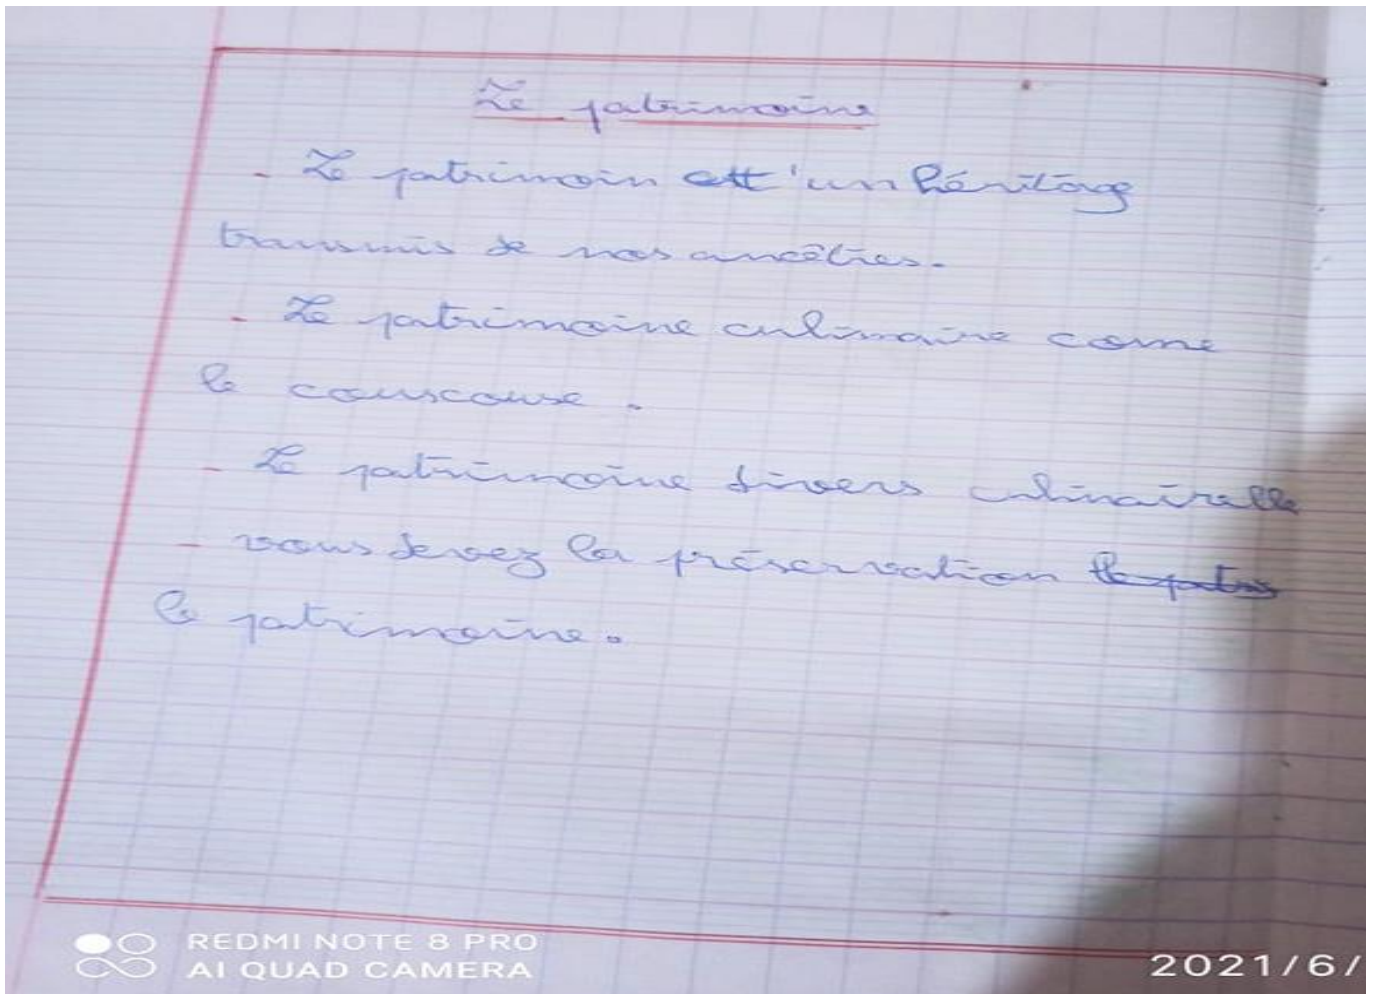 Le patrimoine
- Le patrimoin est 'un héritage
transmis de nos ancêtres.
- Le patrimoine culinaire come
le couscouse.
- Le patrimoine divers culinairelle
- vous devez la préservation
le patrimoine.
REDMI NOTE 8 PRO
AI QUAD CAMERA
2021/6/